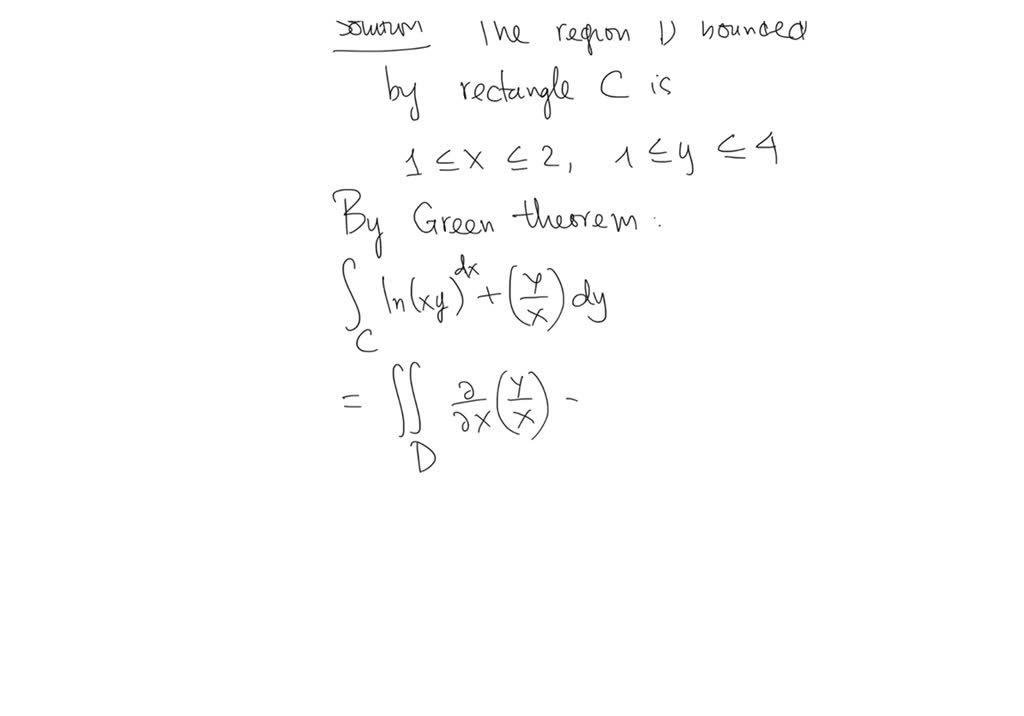 Solution The region D bounded
by rectangle C is
1 ≤ x ≤ 2, 1 ≤ y ≤ 4
By Green theorem:
∫_C ln(xy) dx + (y/x) dy
= ∬_D ∂/∂x (y/x) -